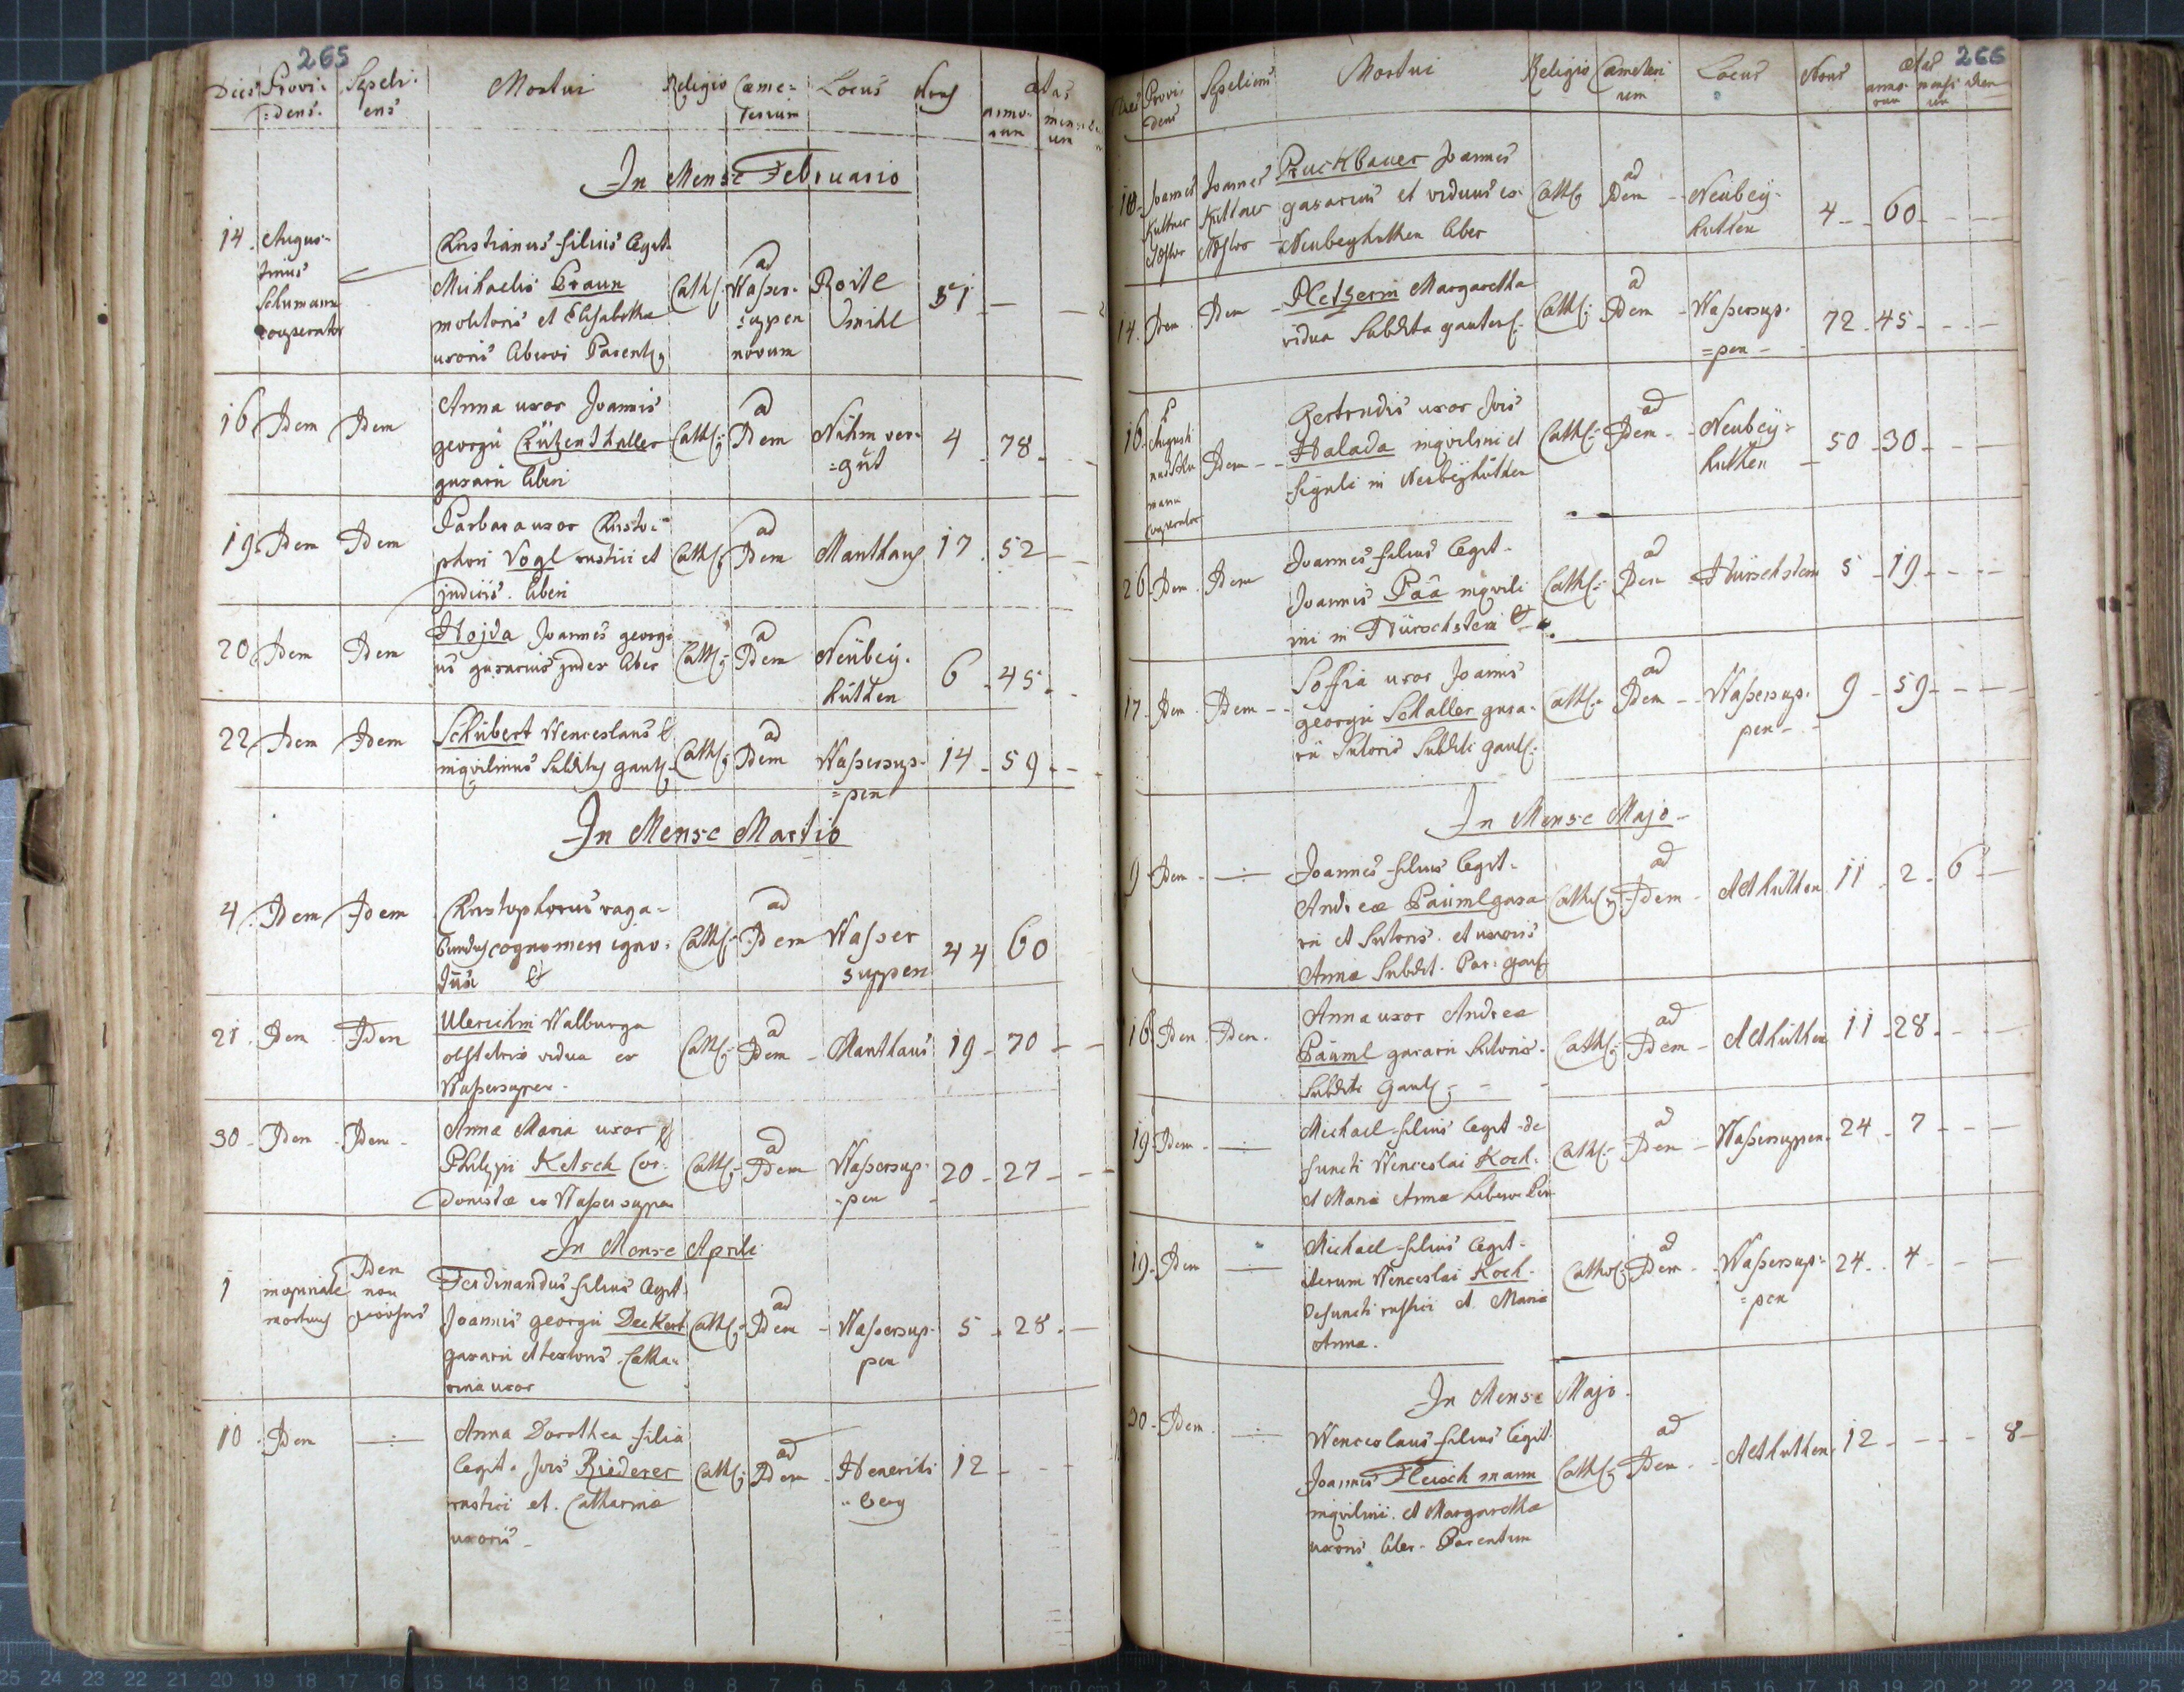 265
Dies Provi= dens. Sepeli= ens Mortui Religio Cæme= terium Locus Nrus ætas
anno- rum mensi- um
In Mense Februario
14. Augus-
tinus
Schumann
Cooperator
Christianus filius legit.
Michaelis Braun
molitoris et Elisabetha
uxoris liberorum Parent:
Cath: ad Wasser-
suppen
novum
51
16 Idem Idem
Anna uxor Joannis
georgii
gasarii liberi
Cath: ad Idem
4 78
19 Idem Idem
Barbara uxor Christo=
phori Vogl rustici et
judicis. liberi
Cath: ad Idem Manthaus 17 52
20 Idem Idem
Hojda Joannes georgi
us gasarius judex liber
Cath: ad Idem Neubey-
hütten
6 45
22 Idem Idem
Schubert Wenceslaus &
inqvilinus Subditus gaut:
Cath: ad Idem Wassersup-
=pen
14 59
In Mense Martio
4 Idem Idem
Christophorus vaga=
bundus cognomen igno-
Cath: ad Idem Wasser
suppen
44 60
21. Idem Idem
Ulerichin Walburga
obstetrix vidua ex
Wassersuppen
Cath: ad Idem Manthaus 19 70
30 Idem Idem
Anna Maria uxor
Philippi Ketsch Cor-
donistæ ex Wassersuppen
Cath: ad Idem Wassersup-
pen
20 27
In Mense Aprili
1 mortuus
Idem
non
provisus
Ferdinandus filius legit.
Joannis georgii Deckert
gasarii et textoris Catha-
rina uxor
Cath: ad Idem Wassersup-
pen
5 28
10 Idem
Anna Dorothea filia
legit. Jois Riederer
rustici et Catharinæ
uxoris
Cath: ad Idem Henerihi
berg
12
266
Dies Provi dens Sepeliens Mortui Religio Cæmeteri um Locus Nrus ætas
anno- rum mensi- um dieru
10 Joannes
Kuttner
Joannes
Kuttner
Pruckbauer Joannes
gasarius et viduus ex
Neubeyhutten liber
Cath: ad Idem Neubey-
hutten
4 60
14. Idem Idem
Pletzerin Margaretha
vidua Subdita gauten:
Cath: ad Idem Wassersup-
=pen
72 45
16
Cooperator
Idem
Gertrudis uxor Jois
Halada inqvilini et
figuli in Neubeyhutten
Cath: ad Idem Neubey-
hutten
50 30
26 Idem Idem
Joannes filius legit.
Joannis Paa inqvili
ni in Hürschstein &
Cath: ad Idem Hürschstein 5 19
17 Idem Idem
Soffia uxor Joannis
georgii Schaller gasa-
rii Sutoris Subditi gaut:
Cath: ad Idem Wassersup-
pen
9 59
In Mense Majo
9 Idem
Joannes filius legit.
Andreæ Päuml gasa
rii et Sutoris et uxoris
Annæ Subdit. Par: gaut:
Cath: ad Idem Althütten 11 2 6
16 Idem Idem
Anna uxor Andreæ
Päuml gasarii Sutoris
Subditi gaut:
Cath: ad Idem Althütten 11 28
19 Idem
Michael filius legit. de
functi Wenceslai Koch
et Maria Anna
Cath: ad Idem Wassersuppen 24 7
19 Idem
Michael filius legit.
iterum Wenceslai Koch
defuncti rustici et Maria
Anna.
Cathol: ad Idem Wassersup-
=pen
24 4
In Mense Majo
30 Idem
Wenceslaus filius legit.
Joannis Fleischmann
inqvilini et Margaretha
uxoris liber. Parentum
Cath: ad Idem Althutten 12 8